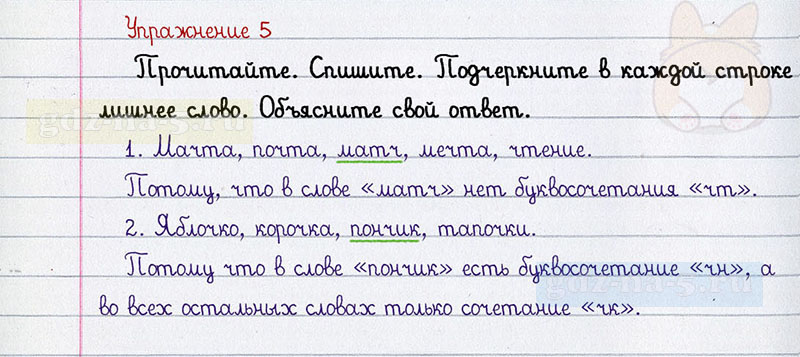 Упражнение 5
Прочитайте. Спишите. Подчеркните в каждой строке
лишнее слово. Объясните свой ответ.
gdz-na-5.ru
1. Мачта, почта, матч, мечта, чтение.
Потому, что в слове «матч» нет буквосочетания «чт».
2. Яблочко, корочка, пончик, тапочки.
Потому что в слове «пончик» есть буквосочетание «чн», а
во всех остальных словах только сочетание «чк».
gdz-na-5.ru